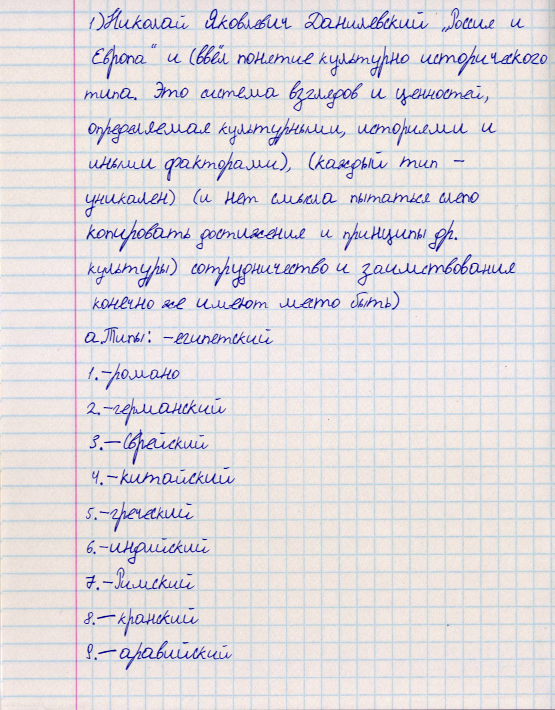 1) Николай Яковлевич Данилевский „Россия и
Европа" и (ввёл понетие культурно исторического
типа. Это система взглядов и ценностей,
определяемая культурными, историями и
иными факторами), (каждый тип –
уникален) (и нет смысла пытаться слепо
копировать достижения и принципы др.
культуры) сотрудничество и заимствования
конечно же имеют место быть)
а. Типы: –египетский
1.–романо
2.–германский
3.–Еврейский
4.–китайский
5.–греческий
6.–индийский
7.–Римский
8.–кранский
9.–аравийский